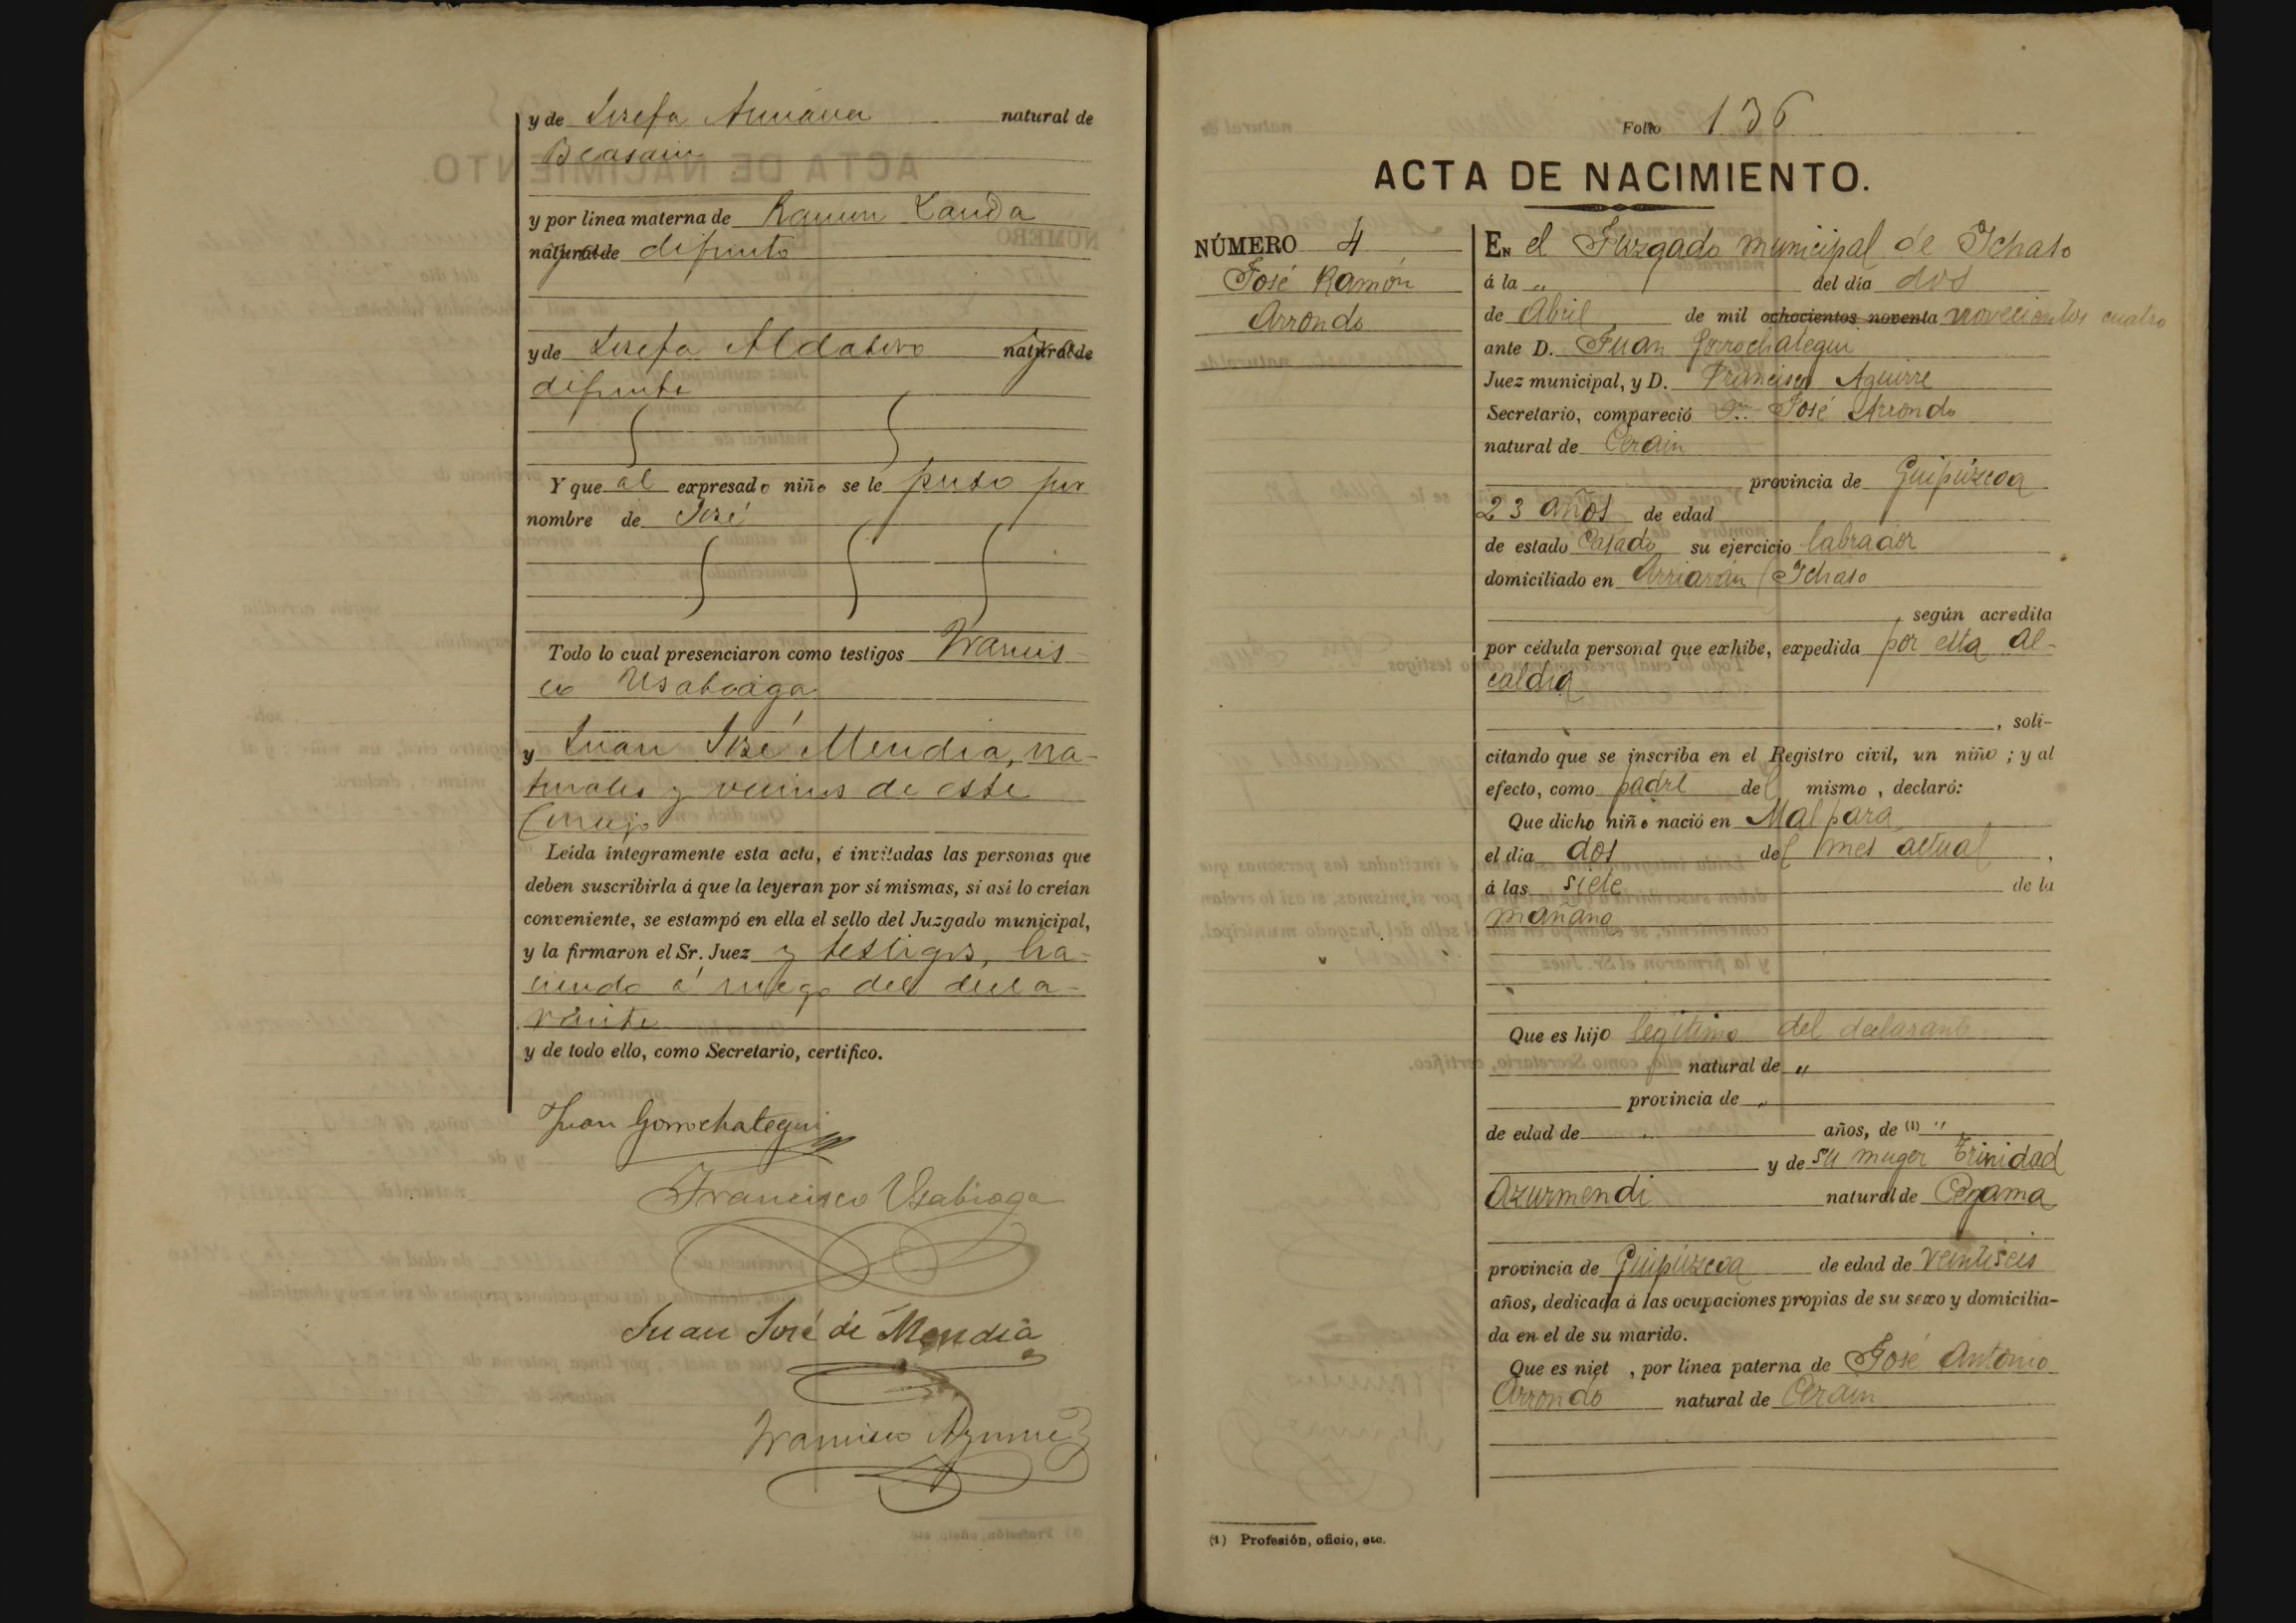 y de Josefa natural de
Beasain
y por línea materna de Ramon Landa
natural de difunto
y de Josefa natural de
difunta
Y que al expresado niño se le puso por
nombre de José
Todo lo cual presenciaron como testigos Francis-
co Usabiaga
y Juan José Mendia, na-
turales y vecinos de este
Concejo
Leida íntegramente esta acta, é invitadas las personas que
deben suscribirla á que la leyeran por sí mismas, si asi lo creían
conveniente, se estampó en ella el sello del Juzgado municipal,
y la firmaron el Sr. Juez y testigos, ha-
ciendo á ruego del decla-
rante
y de todo ello, como Secretario, certifico.
Juan Gorrochategui
Francisco Usabiaga
Juan José de Mendia
Francisco Aguirre
Folio 136
ACTA DE NACIMIENTO.
NÚMERO 4
José Ramón
Arrondo
EN el Juzgado municipal de Ichaso
á la " del día dos
de Abril de mil ochocientos noventa novecientos cuatro
ante D. Juan Gorrochategui
Juez municipal, y D. Francisco Aguirre
Secretario, compareció Dn. José Arrondo
natural de Cerain
provincia de Guipúzcoa
23 años de edad
de estado Casado su ejercicio labrador
domiciliado en Arriarán Ichaso
, según acredita
por cédula personal que exhibe, expedida por esta Al-
caldía
, soli-
citando que se inscriba en el Registro civil, un niño ; y al
efecto, como padre del mismo , declaró:
Que dicho niño nació en Malpara
el dia dos del mes actual ,
á las siete de la
mañana
Que es hijo legítimo del declarante
natural de "
provincia de "
de edad de " años, de (1) "
y de su muger Trinidad
Azurmendi natural de Cegama
provincia de Guipúzcoa de edad de veintiseis
años, dedicada á las ocupaciones propias de su sexo y domicilia-
da en el de su marido.
Que es niet , por línea paterna de José Antonio
Arrondo natural de Cerain
(1) Profesión, oficio, etc.